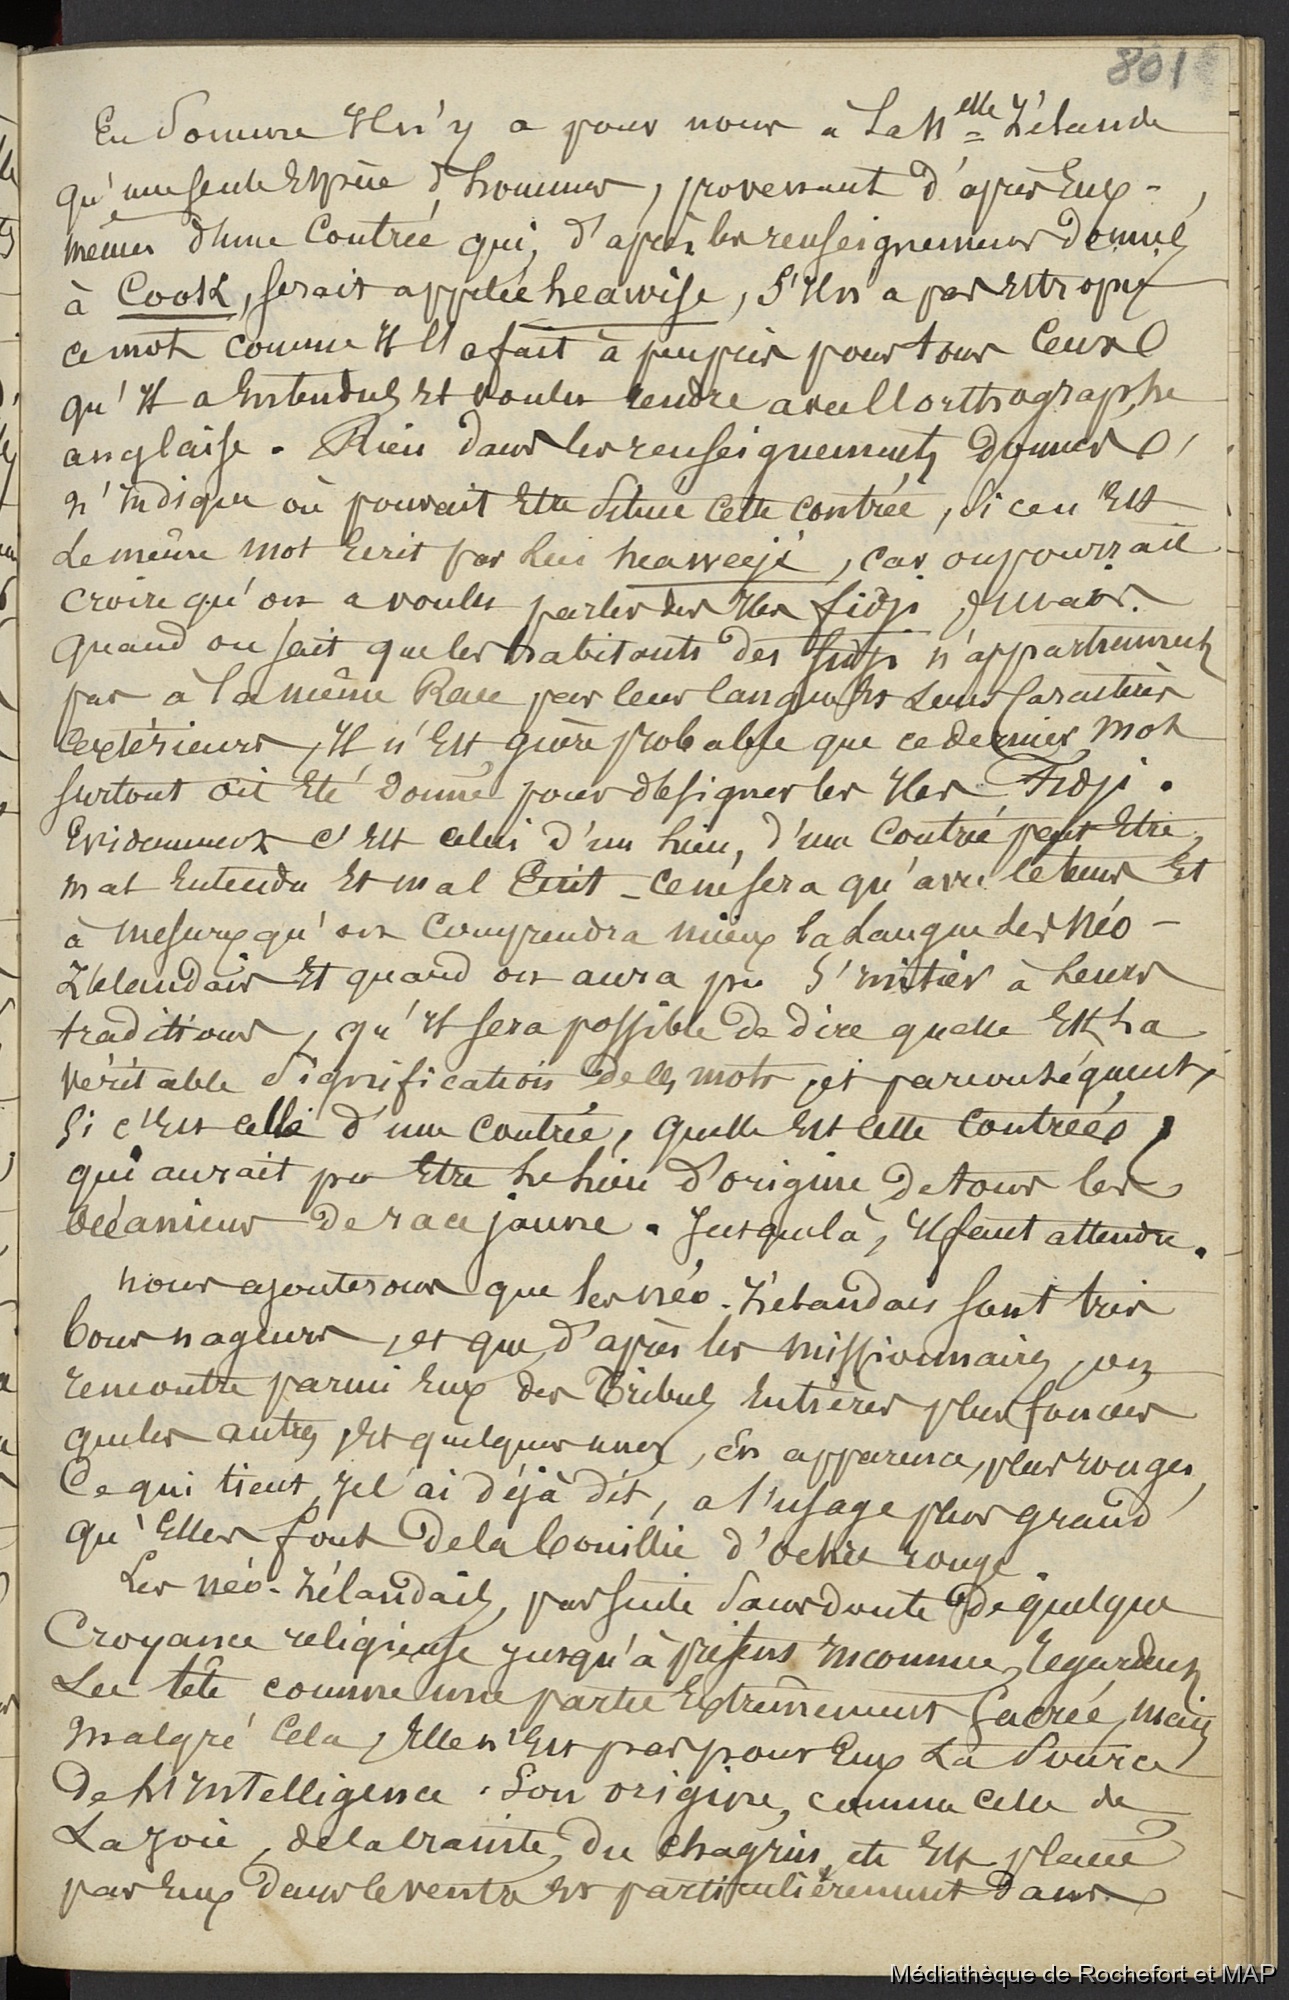 801
En somme il n'y a pour nous à la N.elle Zélande
qu'une seule Espèce d'hommes, provenant d'après Eux-
mêmes d'une Contrée qui, d'après les renseignemens donnés
à Cook, serait appelée heawise, s'il n'a pas Estropié
ce mot comme il l'a fait à peu près pour tous Ceux
qu'il a Entendus Et voulu rendre avec l'orthographe
anglaise. Rien dans les renseignements donnés
n'indique où pouvait Etre située cette contrée, si c'en Est
le même mot Ecrit par lui heaweejé, car on pourrait
croire qu'on a voulu parler des Iles fidji, mais
quand on sait que les habitants des fidji n'appartiennent
pas à la même Race par leur langue Et leurs Caractères
Extérieurs, il n'Est guère probable que ce dernier mot
surtout ait Eté donné pour désigner les Iles Fidji.
Evidemment c'Est celui d'un lieu, d'une Contrée peut Etre,
mal Entendu Et mal Ecrit - ce ne sera qu'avec le tems Et
à mesure qu'on Comprendra mieux la Langue des Néo-
Zélandais Et quand on aura pu s'initier à leurs
traditions, qu'il sera possible de dire quelle Est la
véritable signification de ces mots, et par conséquent,
si c'Est celle d'une contrée, quelle Est cette contrée,
qui aurait pu Etre le lieu d'origine de tous les
Océaniens de race jaune. Jusque là, il faut attendre.
Nous ajouterons que les néo-Zélandais sont très
bons nageurs, et que d'après les missionnaires, on
rencontre parmi Eux des Tribus Entières plus foncées
que les autres, Et quelques unes, En apparence, plus rouges,
Ce qui tient, je l'ai déjà dit, a l'usage plus grand
qu'Elles font de la bouillie d'ochre rouge.
Les néo-Zélandais, par suite sans doute de quelque
Croyance religieuse jusqu'à présent inconnue, regardent
la tête comme une partie Extrêmement sacrée, mais
malgré Cela, Elle n'Est pas pour Eux la source
de l'intelligence. Son origine, comme celle de
la joie, de la crainte, du chagrin, etc Est placée
par Eux dans le ventre Et particulièrement dans
Médiathèque de Rochefort et MAP